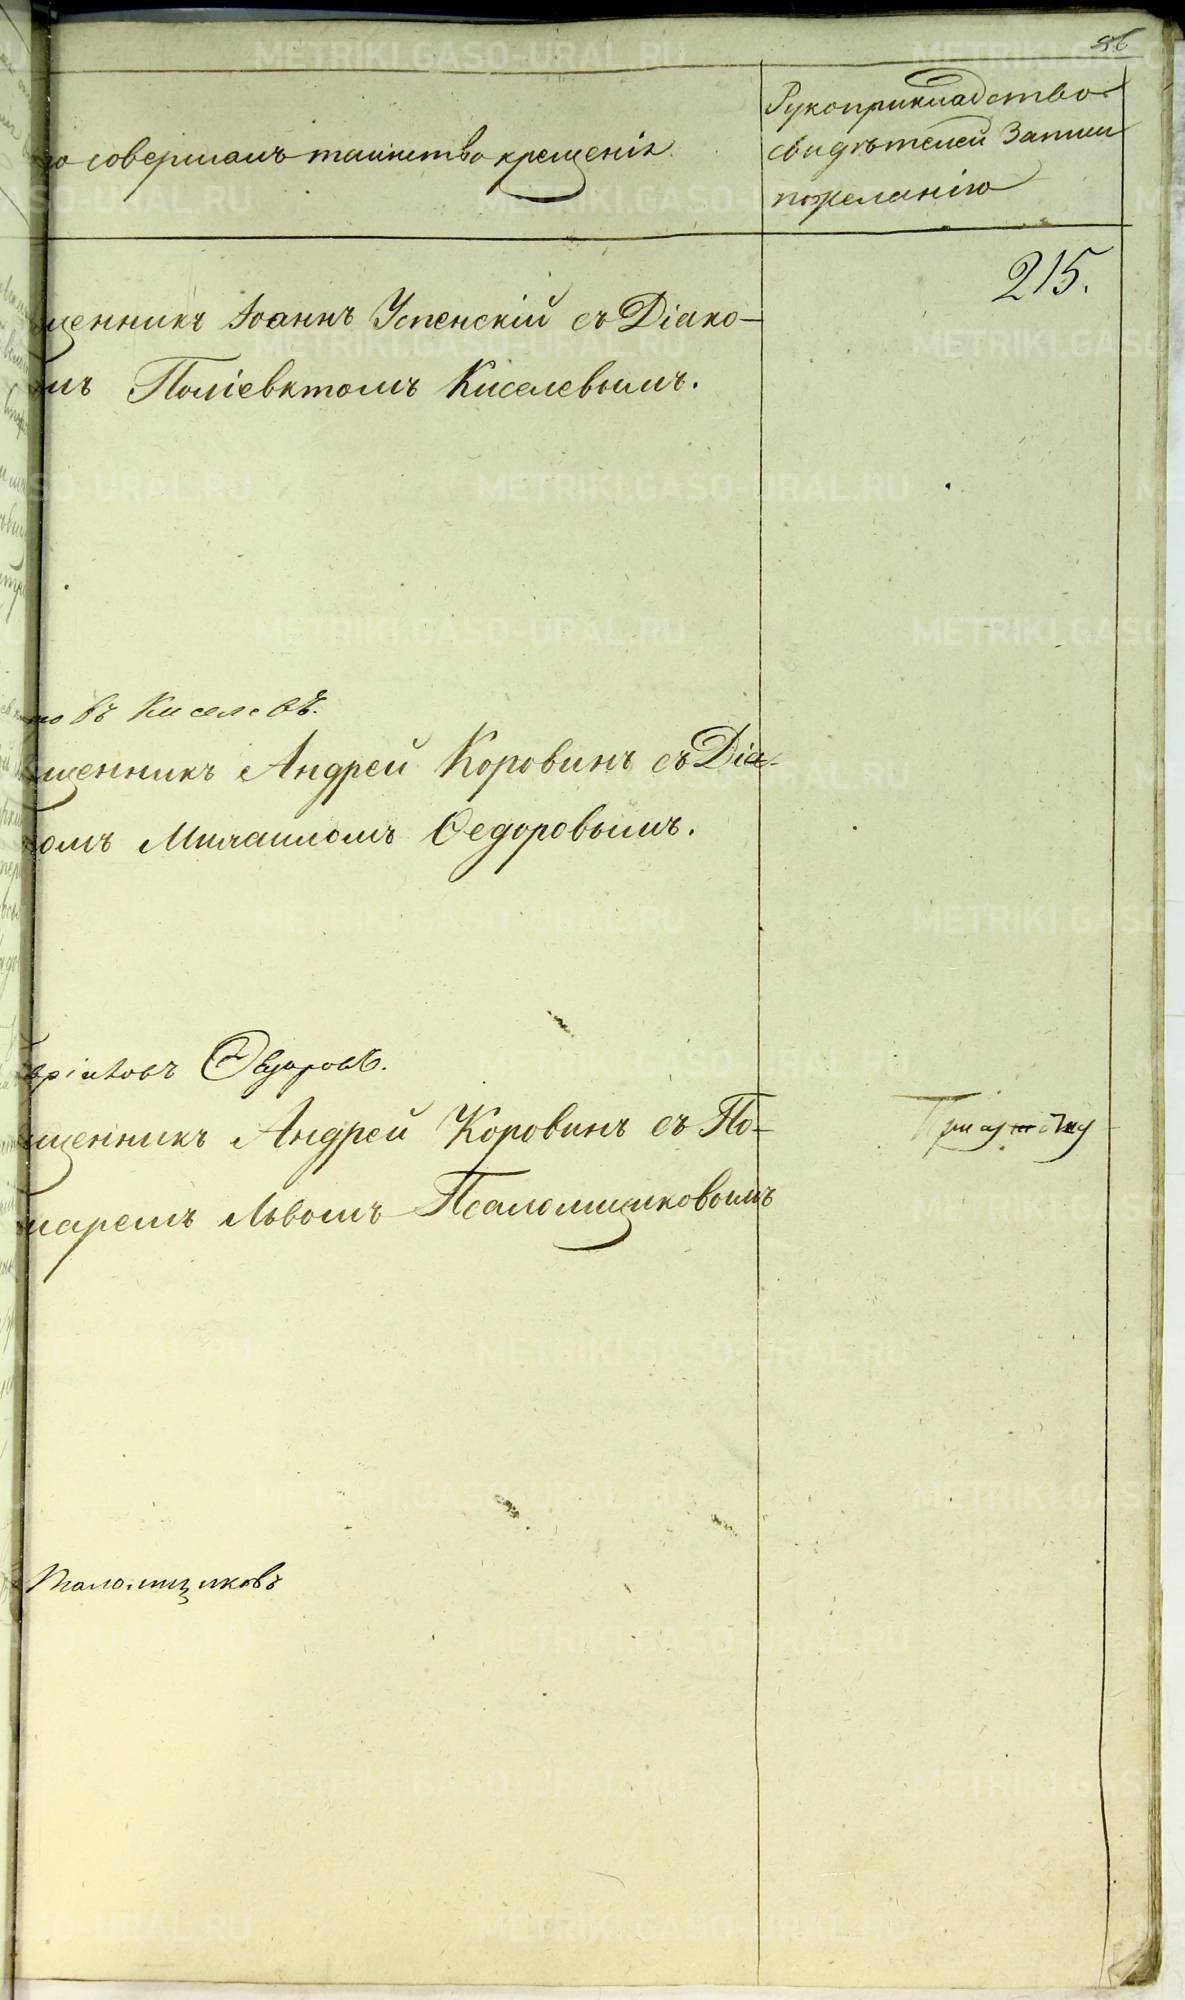 56
то совершалъ таинство крещенія.
Рукоприкладство
свидѣтелей записи
по желанію
215.
щенникъ Іоаннъ Успенскій съ Діако-
мъ Поліевктомъ Киселевымъ.
Киселевъ.
щенникъ Андрей Коровинъ съ Діа-
номъ Михаиломъ Ѳедоровымъ.
Ѳедоровъ.
щенникъ Андрей Коровинъ съ По-
номаремъ Львомъ Псаломщиковымъ
Псаломщиковъ
METRIKI.GASO-URAL.RU